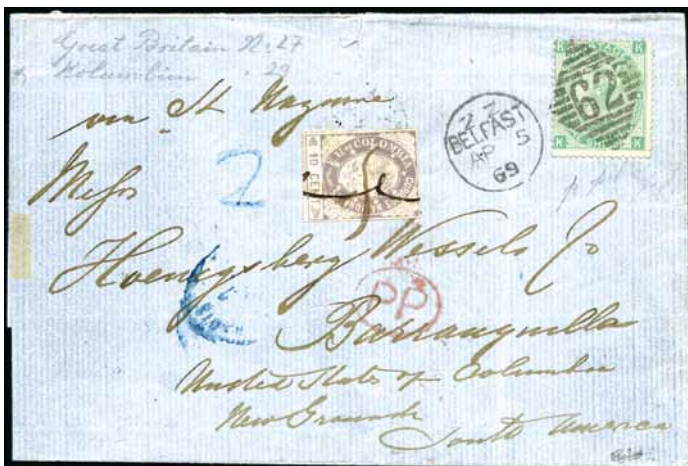 Great Britain Nr. 27
Kolumbien . 29
via St Nazaire
K K
62
K K
SHILL
2 Z 7
BELFAST
AP 5
69
E.U. COLOMBIA
10 CENT
2
Messrs
Hoenigsberg Wessels Co
PP
Barranquilla
United States of Columbia
New Granada
South America